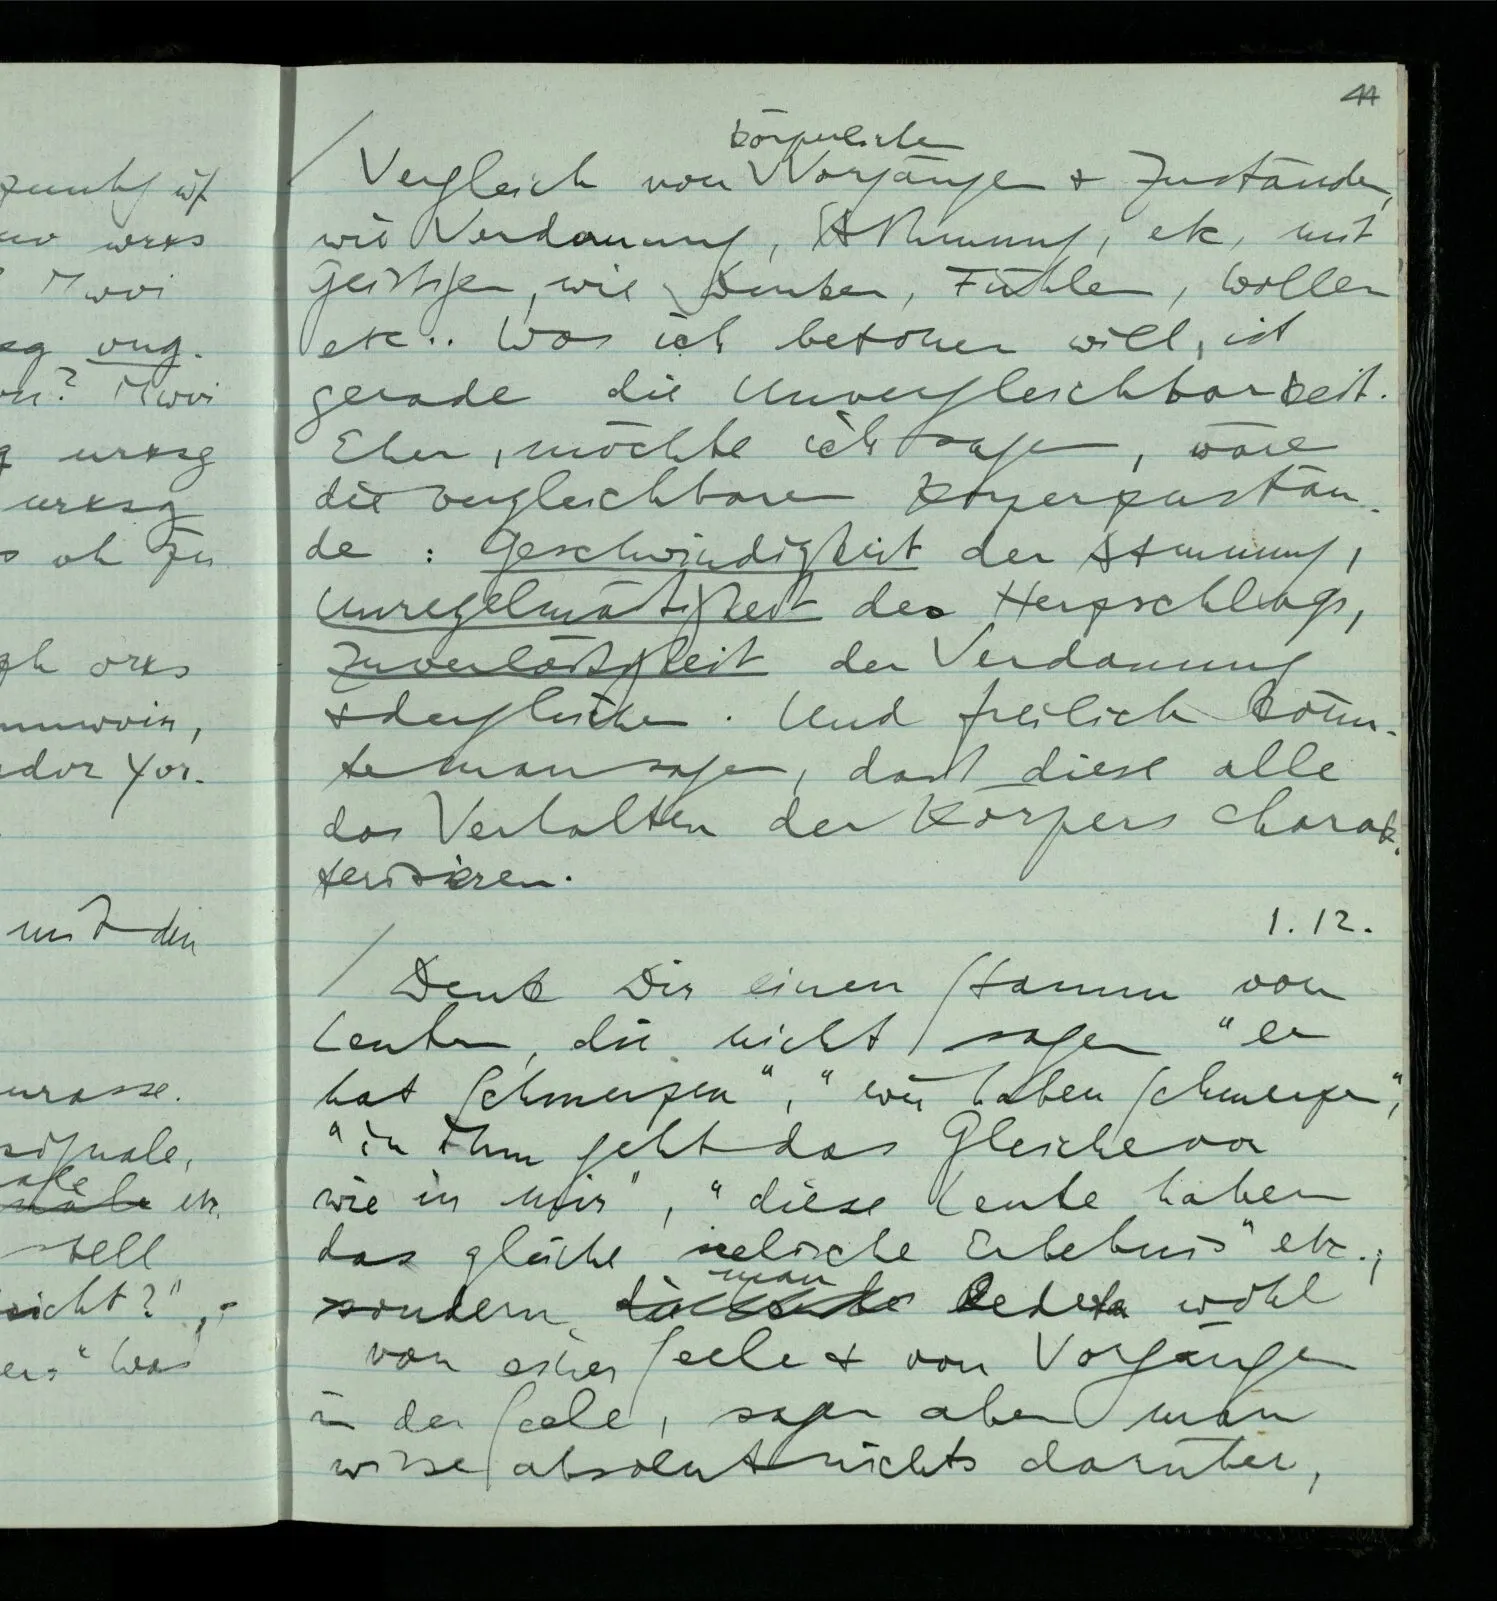 44
körperlichen
/ Vergleich von Vorgängen & Zuständen,
wie Verdauung, Atmung, etc, mit
geistigen, wie Denken, Fühlen, Wollen
etc.. Was ich betonen will, ist
gerade die Unvergleichbarkeit.
Eher, möchte ich sagen, wäre
die vergleichbaren Körperzustän-
de : Geschwindigkeit der Atmung,
Unregelmäßigkeit des Herzschlags,
Zuverläßigkeit der Verdauung
& dergleichen. Und freilich könn-
te man sagen, daß diese alle
das Verhalten des Körpers charak-
terisieren.
1.12.
/ Denk Dir einen Stamm von
Leuten, die nicht sagen "er
hat Schmerzen", "wir haben Schmerzen",
"in ihm geht das Gleiche vor
wie in mir", "diese Leute haben
das gleiche seelische Erlebnis" etc.;
man
sondern redete wohl
von einer Seele & von Vorgängen
in der Seele, sagen aber man
wisse absolut nichts darüber,
ung.
mit den
etc.
nicht?",
Was